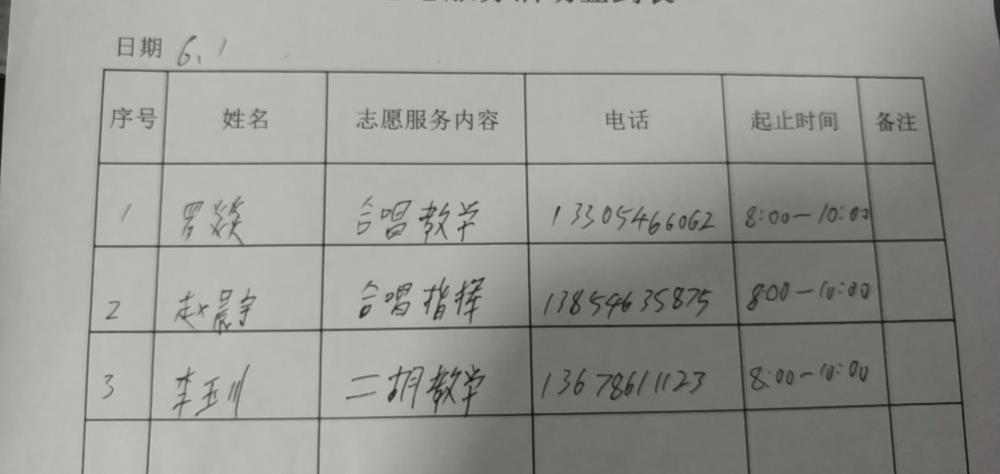 日期 6.1
序号 姓名 志愿服务内容 电话 起止时间 备注
1 罗燚 合唱教学 13305466062 8:00—10:00
2 赵晨宇 合唱指挥 13854635875 8:00—10:00
3 李玉川 二胡教学 13678611123 8:00—10:00